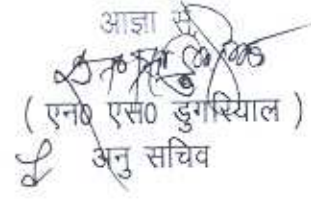 आज्ञा से
( एन0 एस0 डुगरियाल )
अनु सचिव